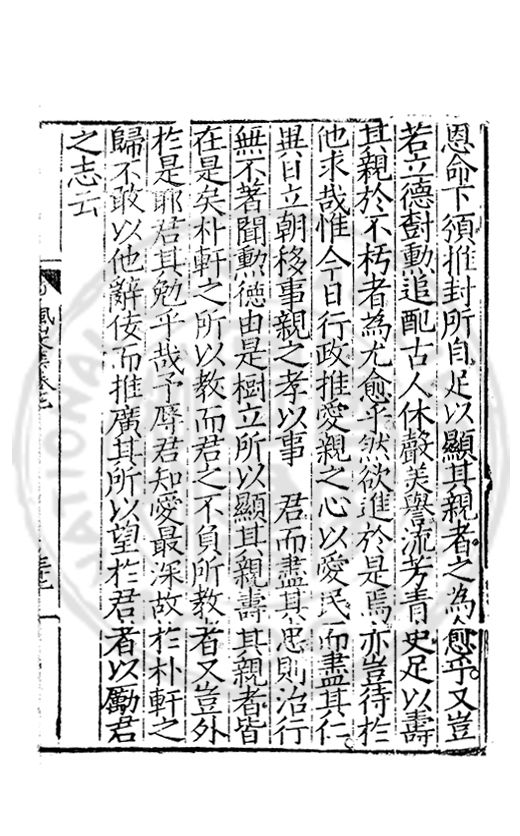 恩命下須推封所自足以顯其親者之為愈乎又豈
若立德樹勲追配古人休聲美譽流芳青史足以壽
其親於不朽者為尤愈乎然欲進於是焉亦豈待於
他求哉惟今日行政推愛親之心以愛民而盡其仁
異日立朝移事親之孝以事 君而盡其忠則治行
無不著聞勲徳由是樹立所以顯其親壽其親者皆
在是矣朴軒之所以教而君之不負所教者又豈外
於是耶君其勉乎哉予辱君知愛最深故於朴軒之
歸不敢以他辭侫而推廣其所以望於君者以勵君
之志云
NATIONAL